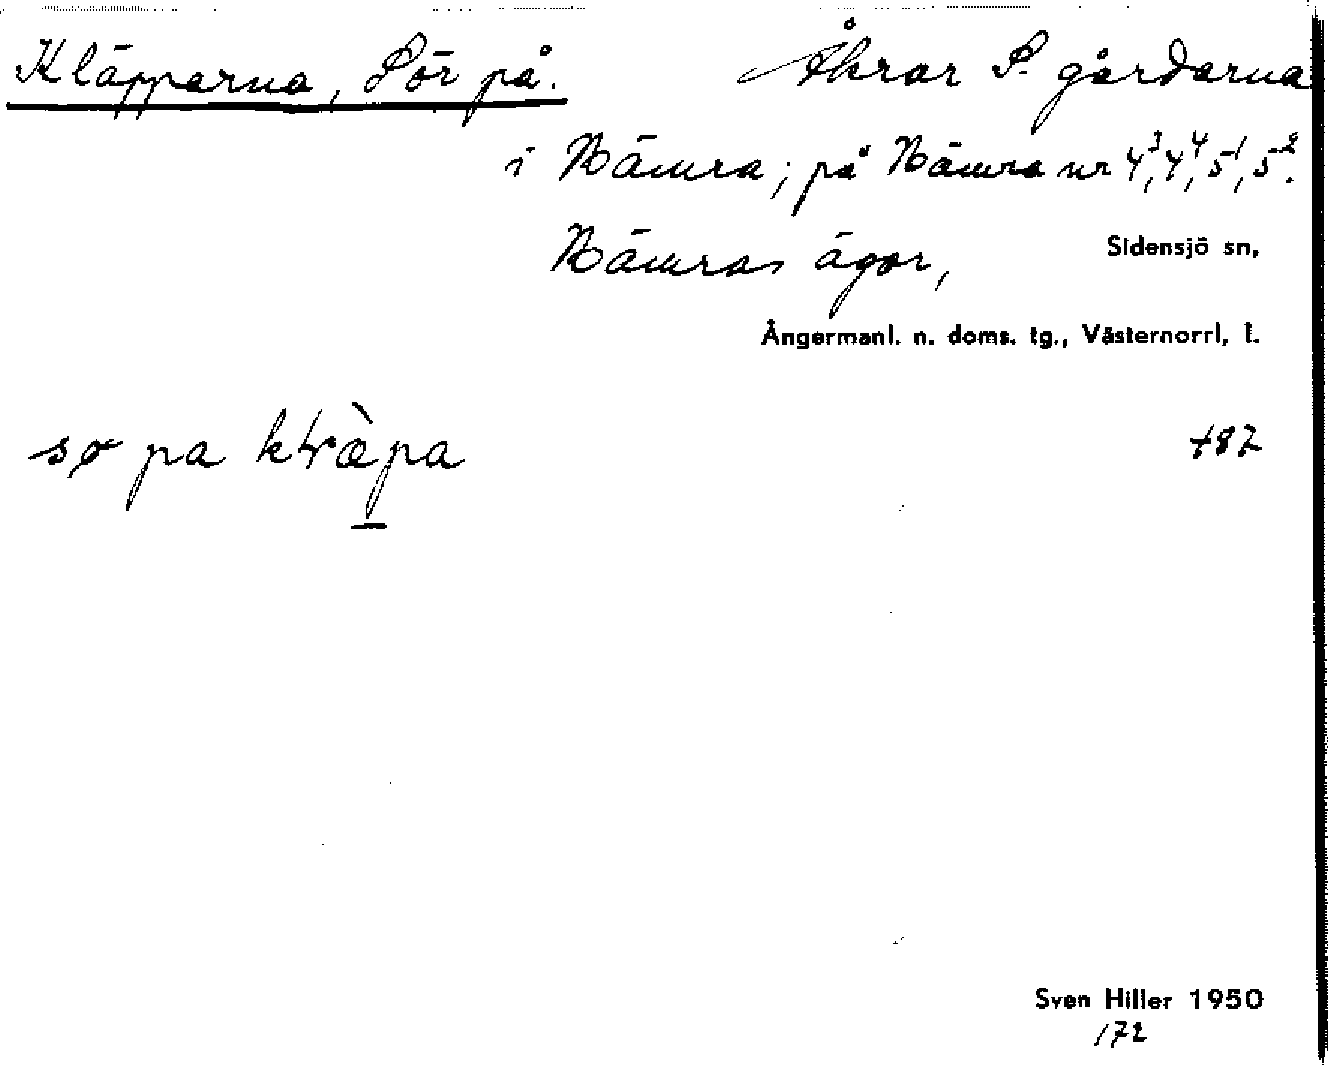 Kläpparna, Sör på. Åkrar S. gårdarna
i Nämra; på Nämra nr 4³, 4⁴, 5¹, 5².
Nämras ägor, Sidensjö sn,
Ångermanl. n. doms. tg., Västernorrl. l.
sø pa 487
Sven Hiller 1950
172